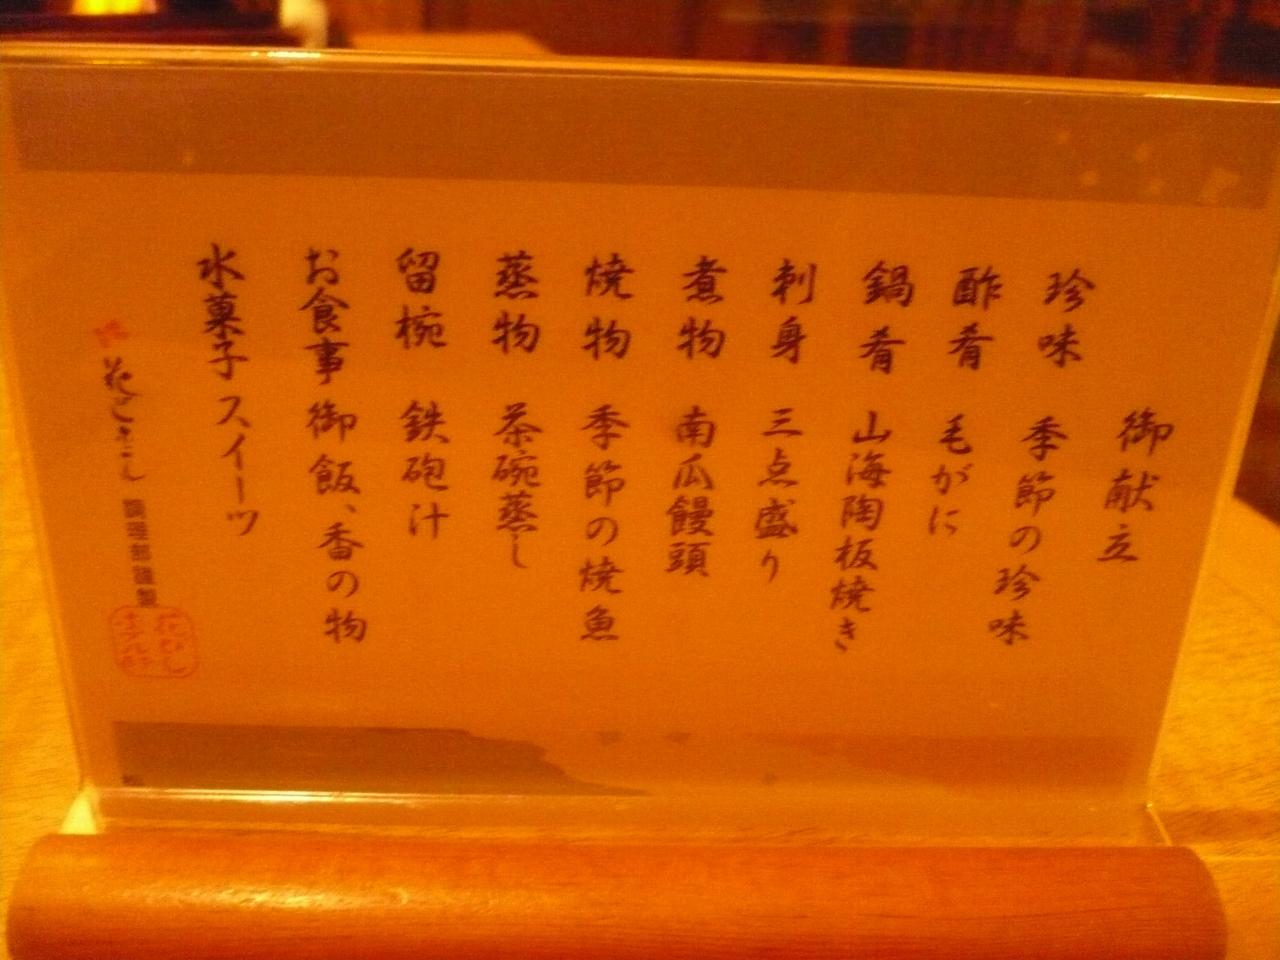 御献立
珍味 季節の珍味
酢肴 毛がに
鍋肴 山海陶板焼き
刺身 三点盛り
煮物 南瓜饅頭
焼物 季節の焼魚
蒸物 茶碗蒸し
留椀 鉄砲汁
お食事 御飯、香の物
水菓子 スイーツ
調理部謹製
花びし
ホテル